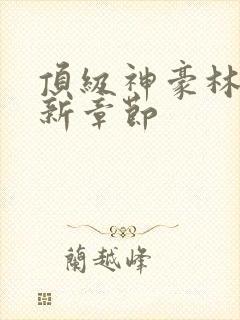 頂級神豪林
新章節
蘭越峰